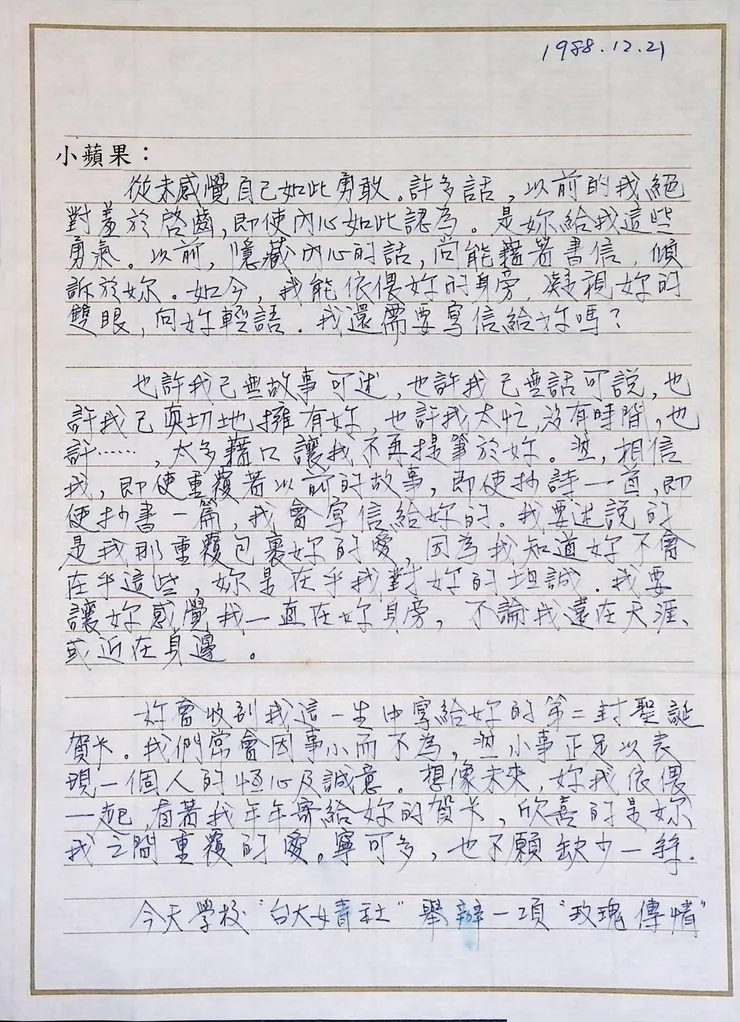 1988.12.21
小蘋果：
從未感覺自己如此勇敢。許多話，以前的我絕
對羞於啓齒，即使內心如此認為。是妳給我這些
勇氣。以前，隱藏內心的話，尚能藉著書信，傾
訴於妳。如今，我能依偎妳的身旁，凝視妳的
雙眼，向妳輕語。我還需要寫信給妳嗎？
也許我已無故事可述，也許我已無話可說，也
許我已真切地擁有妳，也許我太忙，沒有時間，也
許……，太多藉口讓我不再提筆於妳。然，相信
我，即使重覆著以前的故事，即使抄詩一首，即
使抄書一篇，我會寫信給妳的。我要述說的
是我那重覆包裹妳的愛，因為我知道妳不會
在乎這些，妳是在乎我對妳的坦誠。我要
讓妳感覺我一直在妳身旁，不論我遠在天涯、
或近在身邊。
妳會收到我這一生中寫給妳的第二封聖誕
賀卡。我們常會因事小而不為，然小事正足以表
現一個人的恒心及誠意。想像未來，妳我依偎
一起，看著我年年寄給妳的賀卡，欣喜的是妳
我之間重覆的愛。寧可多，也不願缺少一絲。
今天學校“台大女青社”舉辦一項“玫瑰傳情”